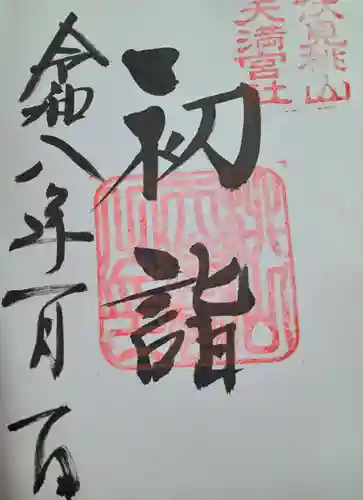 伏見桃山
天満宮社
初詣
令和八年一月一日